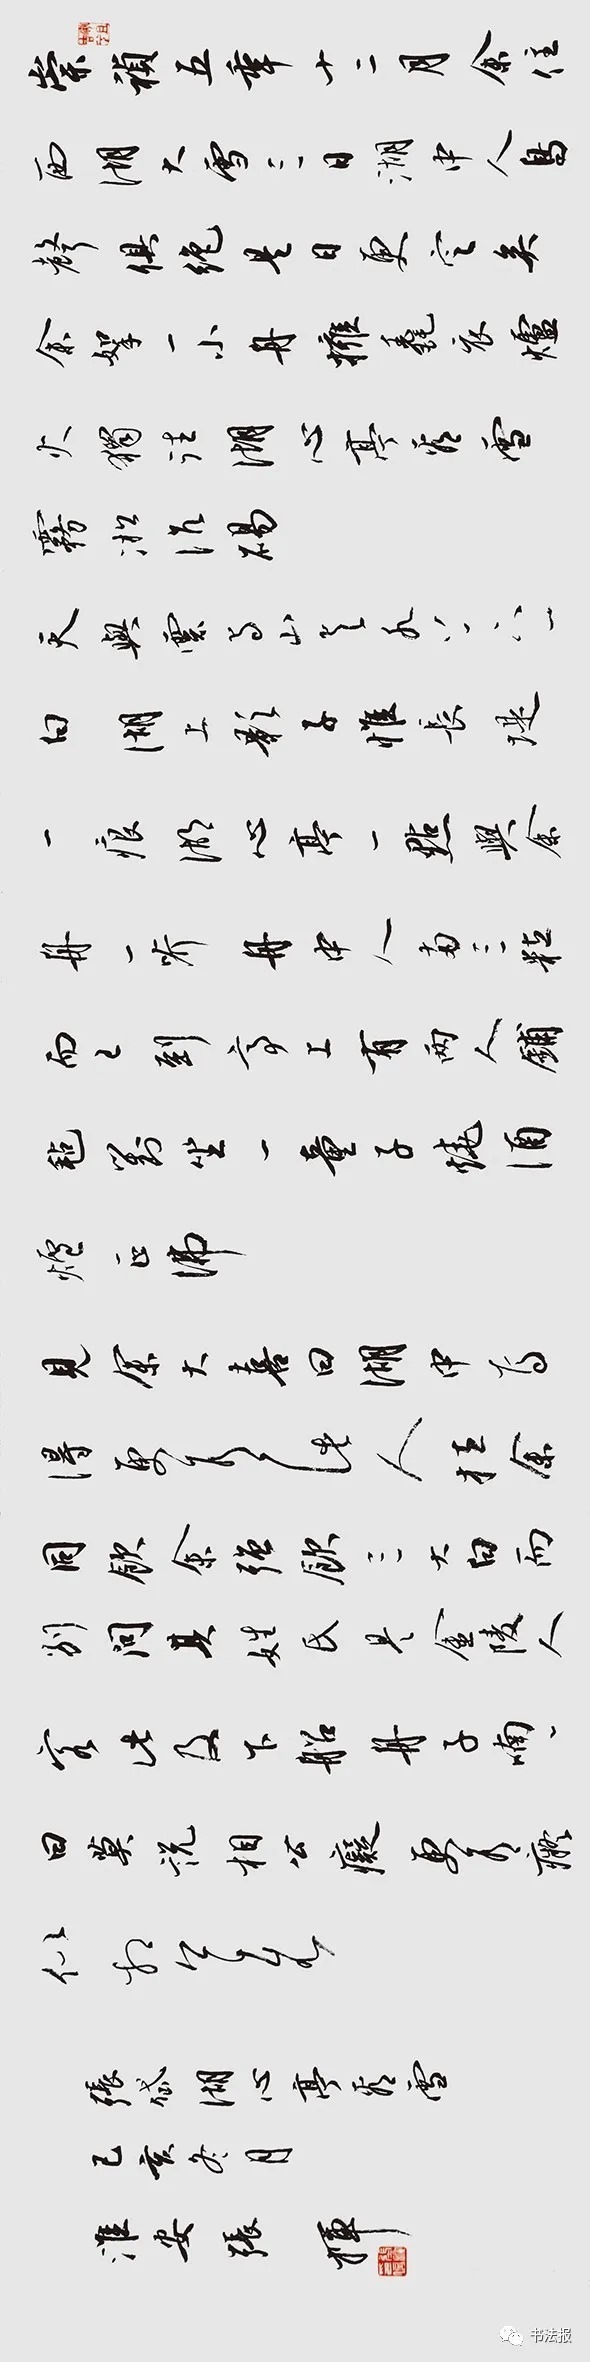 崇禎五年十二月余住
西湖大雪三日湖中人鳥
聲俱絕是日更定矣
余拏一小舟擁毳衣爐
火獨往湖心亭看雪
霧凇沆碭
天與雲與山與水上下一
白湖上影子惟長堤
一痕湖心亭一點與余
舟一芥舟中人兩三粒
而已到亭上有兩人鋪
氈對坐一童子燒酒
爐正沸
見余大喜曰湖中焉
得更有此人拉余
同飲余強飲三大白而
別問其姓氏是金陵人
客此及下船舟子喃〻
曰莫說相公癡更有癡
似相公者
張岱湖心亭看雪
己亥冬月
淮安張揮
书法报